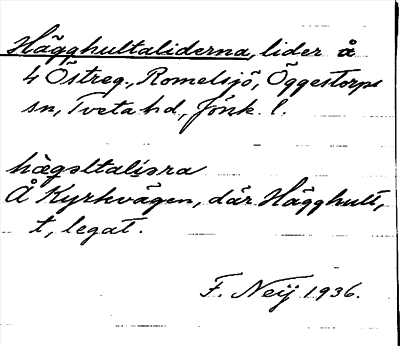 Hägghultaliderna, lider å
4 Östreg., Romelsjö, Öggestorps
sn, Tveta hd, Jönk. l.
hægsltalisra
Å Kyrkvägen, där Hägghult,
t, legat.
F. Neij 1936.